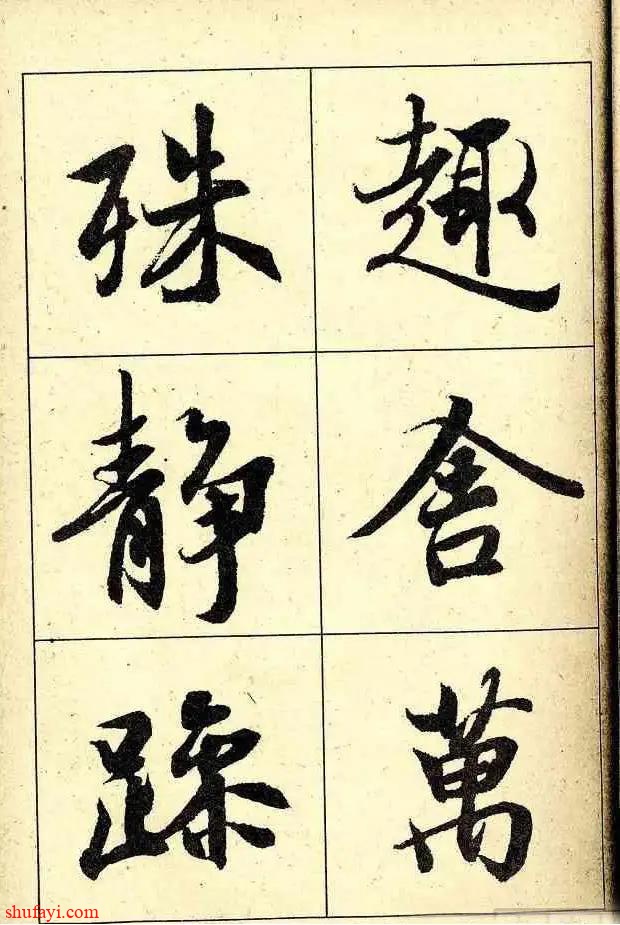 趣舍萬
殊静躁
shufayi.com